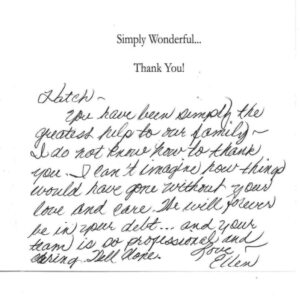 Simply Wonderful...
Thank You!
Hatch ~
You have been simply the
greatest help to our family ~
I do not know how to thank
you. I can't imagine how things
would have gone without your
love and care. We will forever
be in your debt... and your
team is so professional and
caring. Well done.
Love ~
Ellen